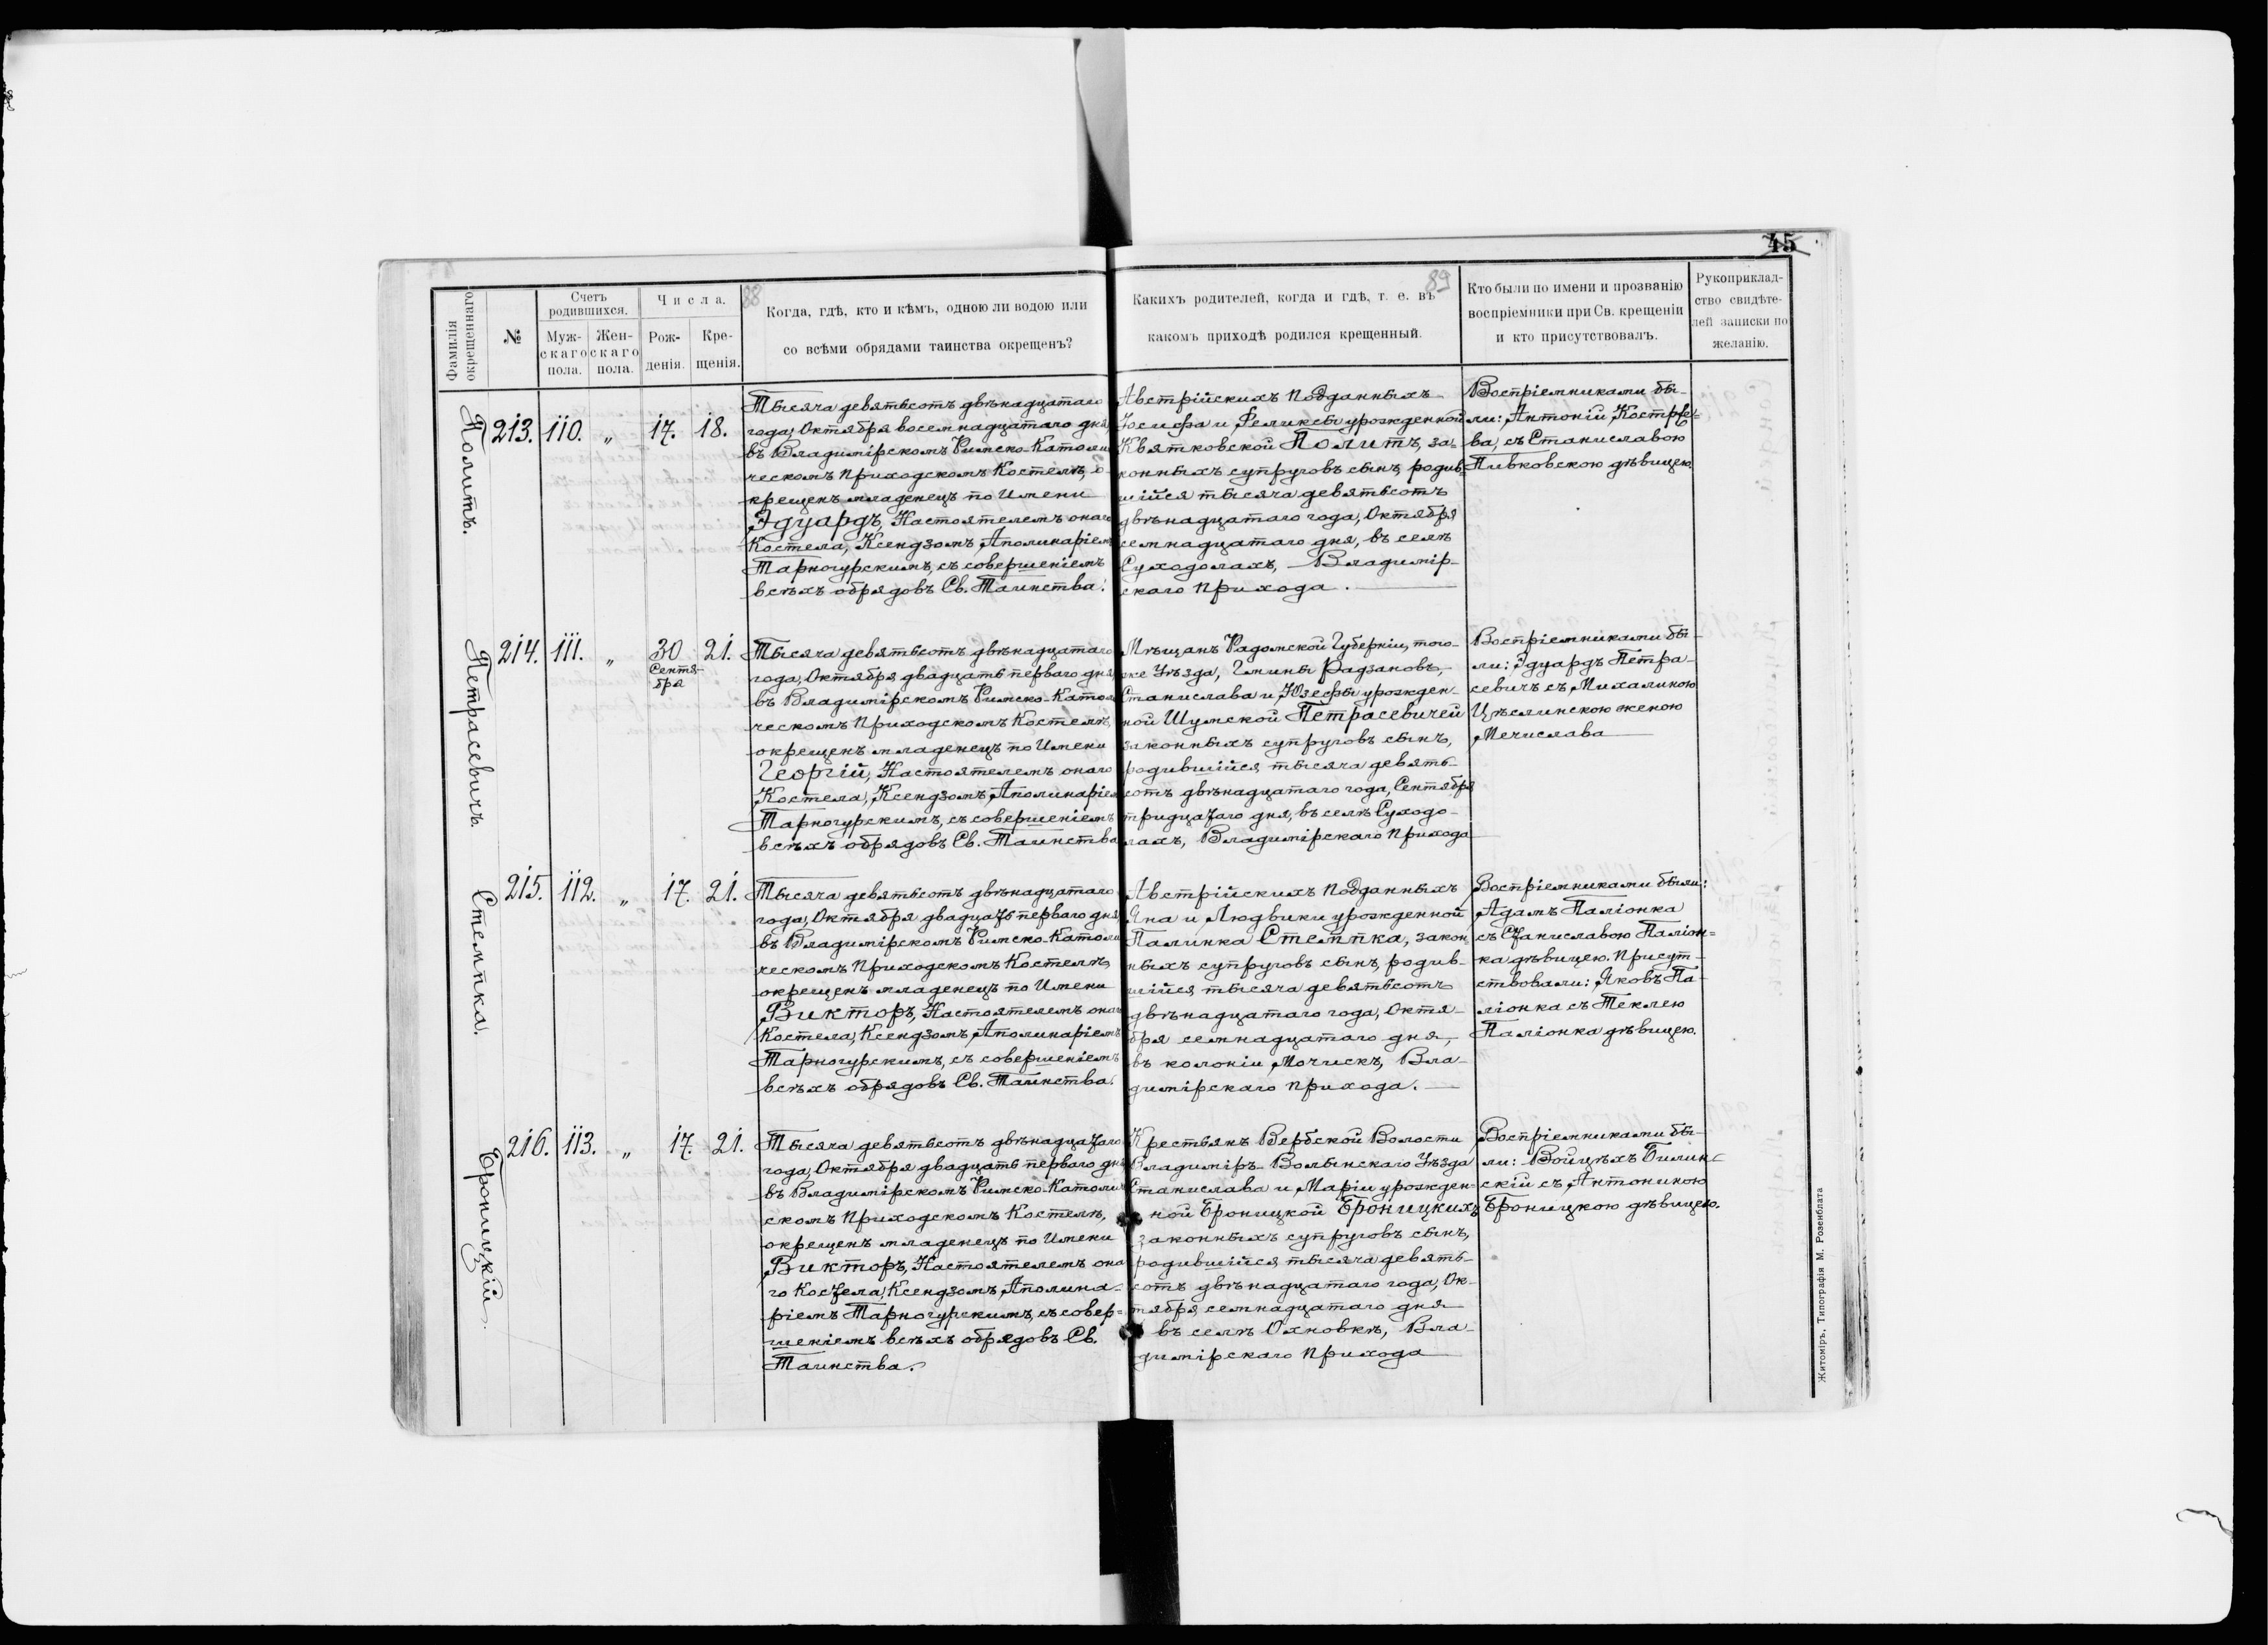 45
88
89
Фамилія окрещеннаго.
№
Счетъ родившихся.
Муж-скаго пола.
Жен-скаго пола.
Числа.
Рож-денія.
Кре-щенія.
Когда, гдѣ, кто и кѣмъ, одною ли водою или
со всѣми обрядами таинства окрещенъ?
Какихъ родителей, когда и гдѣ, т. е. въ
какомъ приходѣ родился крещенный.
Кто были по имени и прозванію
воспріемники при Св. крещеніи
и кто присутствовалъ.
Рукоприклад-
ство свидѣте-
лей записки по
желанію.
Политъ.
213. 110. „ 17. 18.
Тысяча девятьсотъ двѣнадцатаго
года, Октября восемнадцатаго дня,
въ Владимірскомъ Римско-Католи
ческомъ Приходскомъ Костелѣ, о-
крещенъ младенецъ по Имени
Эдуардъ, Настоятелемъ онаго
Костела, Ксендзомъ, Аполинаріемъ
Тарногурскимъ, съ совершеніемъ
всѣхъ обрядовъ Св. Таинства.
Австрійскихъ Подданныхъ
Іосифа и Феликсы урожденной
Квятковской Политъ, за-
конныхъ супруговъ сынъ, родив-
шійся тысяча девятьсотъ
двѣнадцатаго года, Октября
семнадцатаго дня, въ селѣ
Суходолахъ, Владимір-
скаго Прихода.
Воспріемниками бы-
ли: Антоній Костржe-
ва, съ Станиславою
Пивковскою дѣвицею.
Петрасевичъ.
214. 111. „ 30 Сентя-бря 21.
Тысяча девятьсотъ двѣнадцатаго
года, Октября двадцать перваго дня
въ Владимірскомъ Римско-Католи
ческомъ Приходскомъ Костелѣ,
окрещенъ младенецъ по Имени
Георгій, Настоятелемъ онаго
Костела, Ксендзомъ, Аполинаріем
Тарногурскимъ, съ совершеніемъ
всѣхъ обрядовъ Св. Таинства
Мѣщанъ Радомской Губерніи, того-
же Уѣзда, Гмины Радзановъ,
Станислава и Юзефы урожден-
ной Шумской Петрасевичей
законныхъ супруговъ сынъ,
родившійся тысяча девять-
сотъ двѣнадцатаго года, Сентября
тридцатаго дня, въ селѣ Суходо-
лахъ, Владимірскаго Прихода
Воспріемниками бы-
ли: Эдуардъ Петра-
севичъ съ Михалиною
Цѣслинскою женою
Мечислава
Стемпка.
215. 112. „ 17. 21.
Тысяча девятьсотъ двѣнадцатаго
года, Октября двадцать перваго дня
въ Владимірскомъ Римско-Католи
ческомъ Приходскомъ Костелѣ
окрещенъ младенецъ по Имени
Викторъ, Настоятелемъ онаго
Костела, Ксендзомъ, Аполинаріемъ
Тарногурскимъ, съ совершеніемъ
всѣхъ обрядовъ Св. Таинства.
Австрійскихъ Подданныхъ
Яна и Людвики урожденной
Палинка Стемпка, закон-
ныхъ супруговъ сынъ, родив-
шійся тысяча девятьсотъ
двѣнадцатаго года, Октя-
бря семнадцатаго дня,
въ колоніи Мочискъ, Вла-
димірскаго Прихода.
Воспріемниками были:
Адамъ Паліонка
съ Станиславою Паліон-
ка дѣвицею. Присут-
ствовали: Яковъ Па-
ліонка съ Теклею
Паліонка дѣвицею.
Броницкій.
216. 113. „ 17. 21.
Тысяча девятьсотъ двѣнадцатаго
года, Октября двадцать перваго дня
въ Владимірскомъ Римско-Католич
скомъ Приходскомъ Костелѣ,
окрещенъ младенецъ по Имени
Викторъ, Настоятелемъ она
го Костела, Ксендзомъ, Аполина-
ріемъ Тарногурскимъ, съ совер-
шеніемъ всѣхъ обрядовъ Св.
Таинства.
Крестьянъ Вербской Волости
Владиміръ-Волынскаго Уѣзда
Станислава и Маріи урожден-
ной Броницкой Броницкихъ
законныхъ супруговъ сынъ,
родившійся тысяча девять-
сотъ двѣнадцатаго года, Ок-
тября семнадцатаго дня
въ селѣ Охновкѣ, Вла-
димірскаго Прихода
Воспріемниками бы-
ли: Войцѣхъ Билин-
скій съ Антониною
Броницкою дѣвицею.
Житоміръ, Типографія М. Розенблата